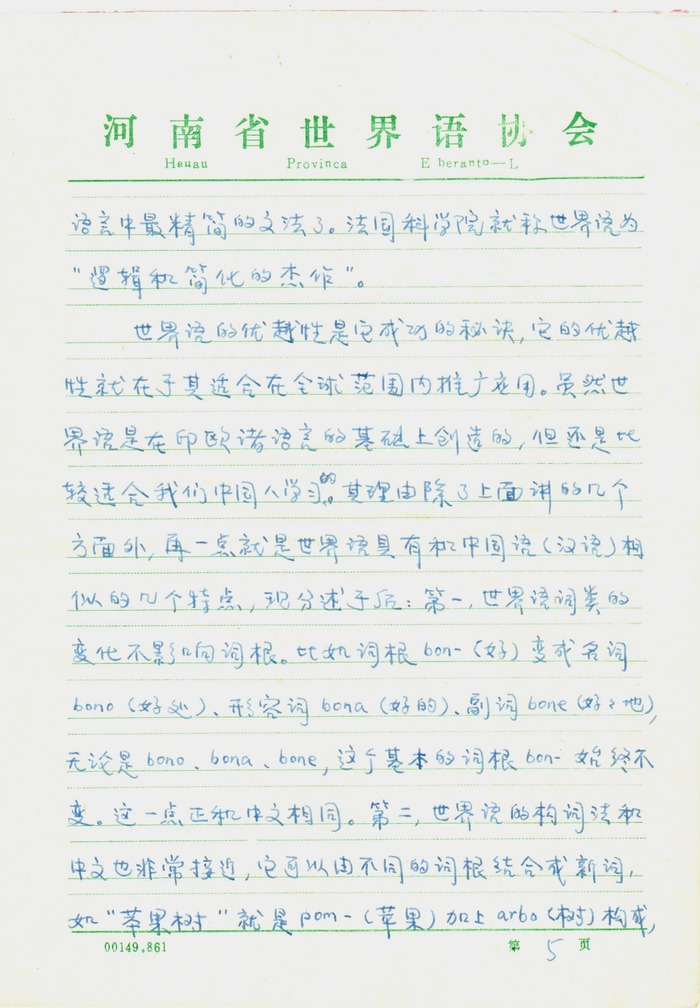 河南省世界语协会
Henau Provinca E beranto—L
语言中最精简的文法了。法国科学院就称世界语为
“逻辑和简化的杰作”。
世界语的优越性是它成功的秘诀,它的优越
性就在于其适合在全球范围内推广应用。虽然世
界语是在印欧诸语言的基础上创造的,但还是比
较适合我们中国人学习的。其理由除了上面讲的几个
方面外,再一点就是世界语具有和中国语(汉语)相
似的几个特点,现分述于后:第一,世界语词类的
变化不影响词根。比如词根bon-(好)变成名词
bono(好处)、形容词bona(好的)、副词bone(好々地),
无论是bono、bona、bone,这个基本的词根bon-始终不
变。这一点正和中文相同。第二,世界语的构词法和
中文也非常接近,它可以由不同的词根结合成新词,
如“苹果树”就是pom-(苹果)加上arbo(树)构成,
00149.861 第5页